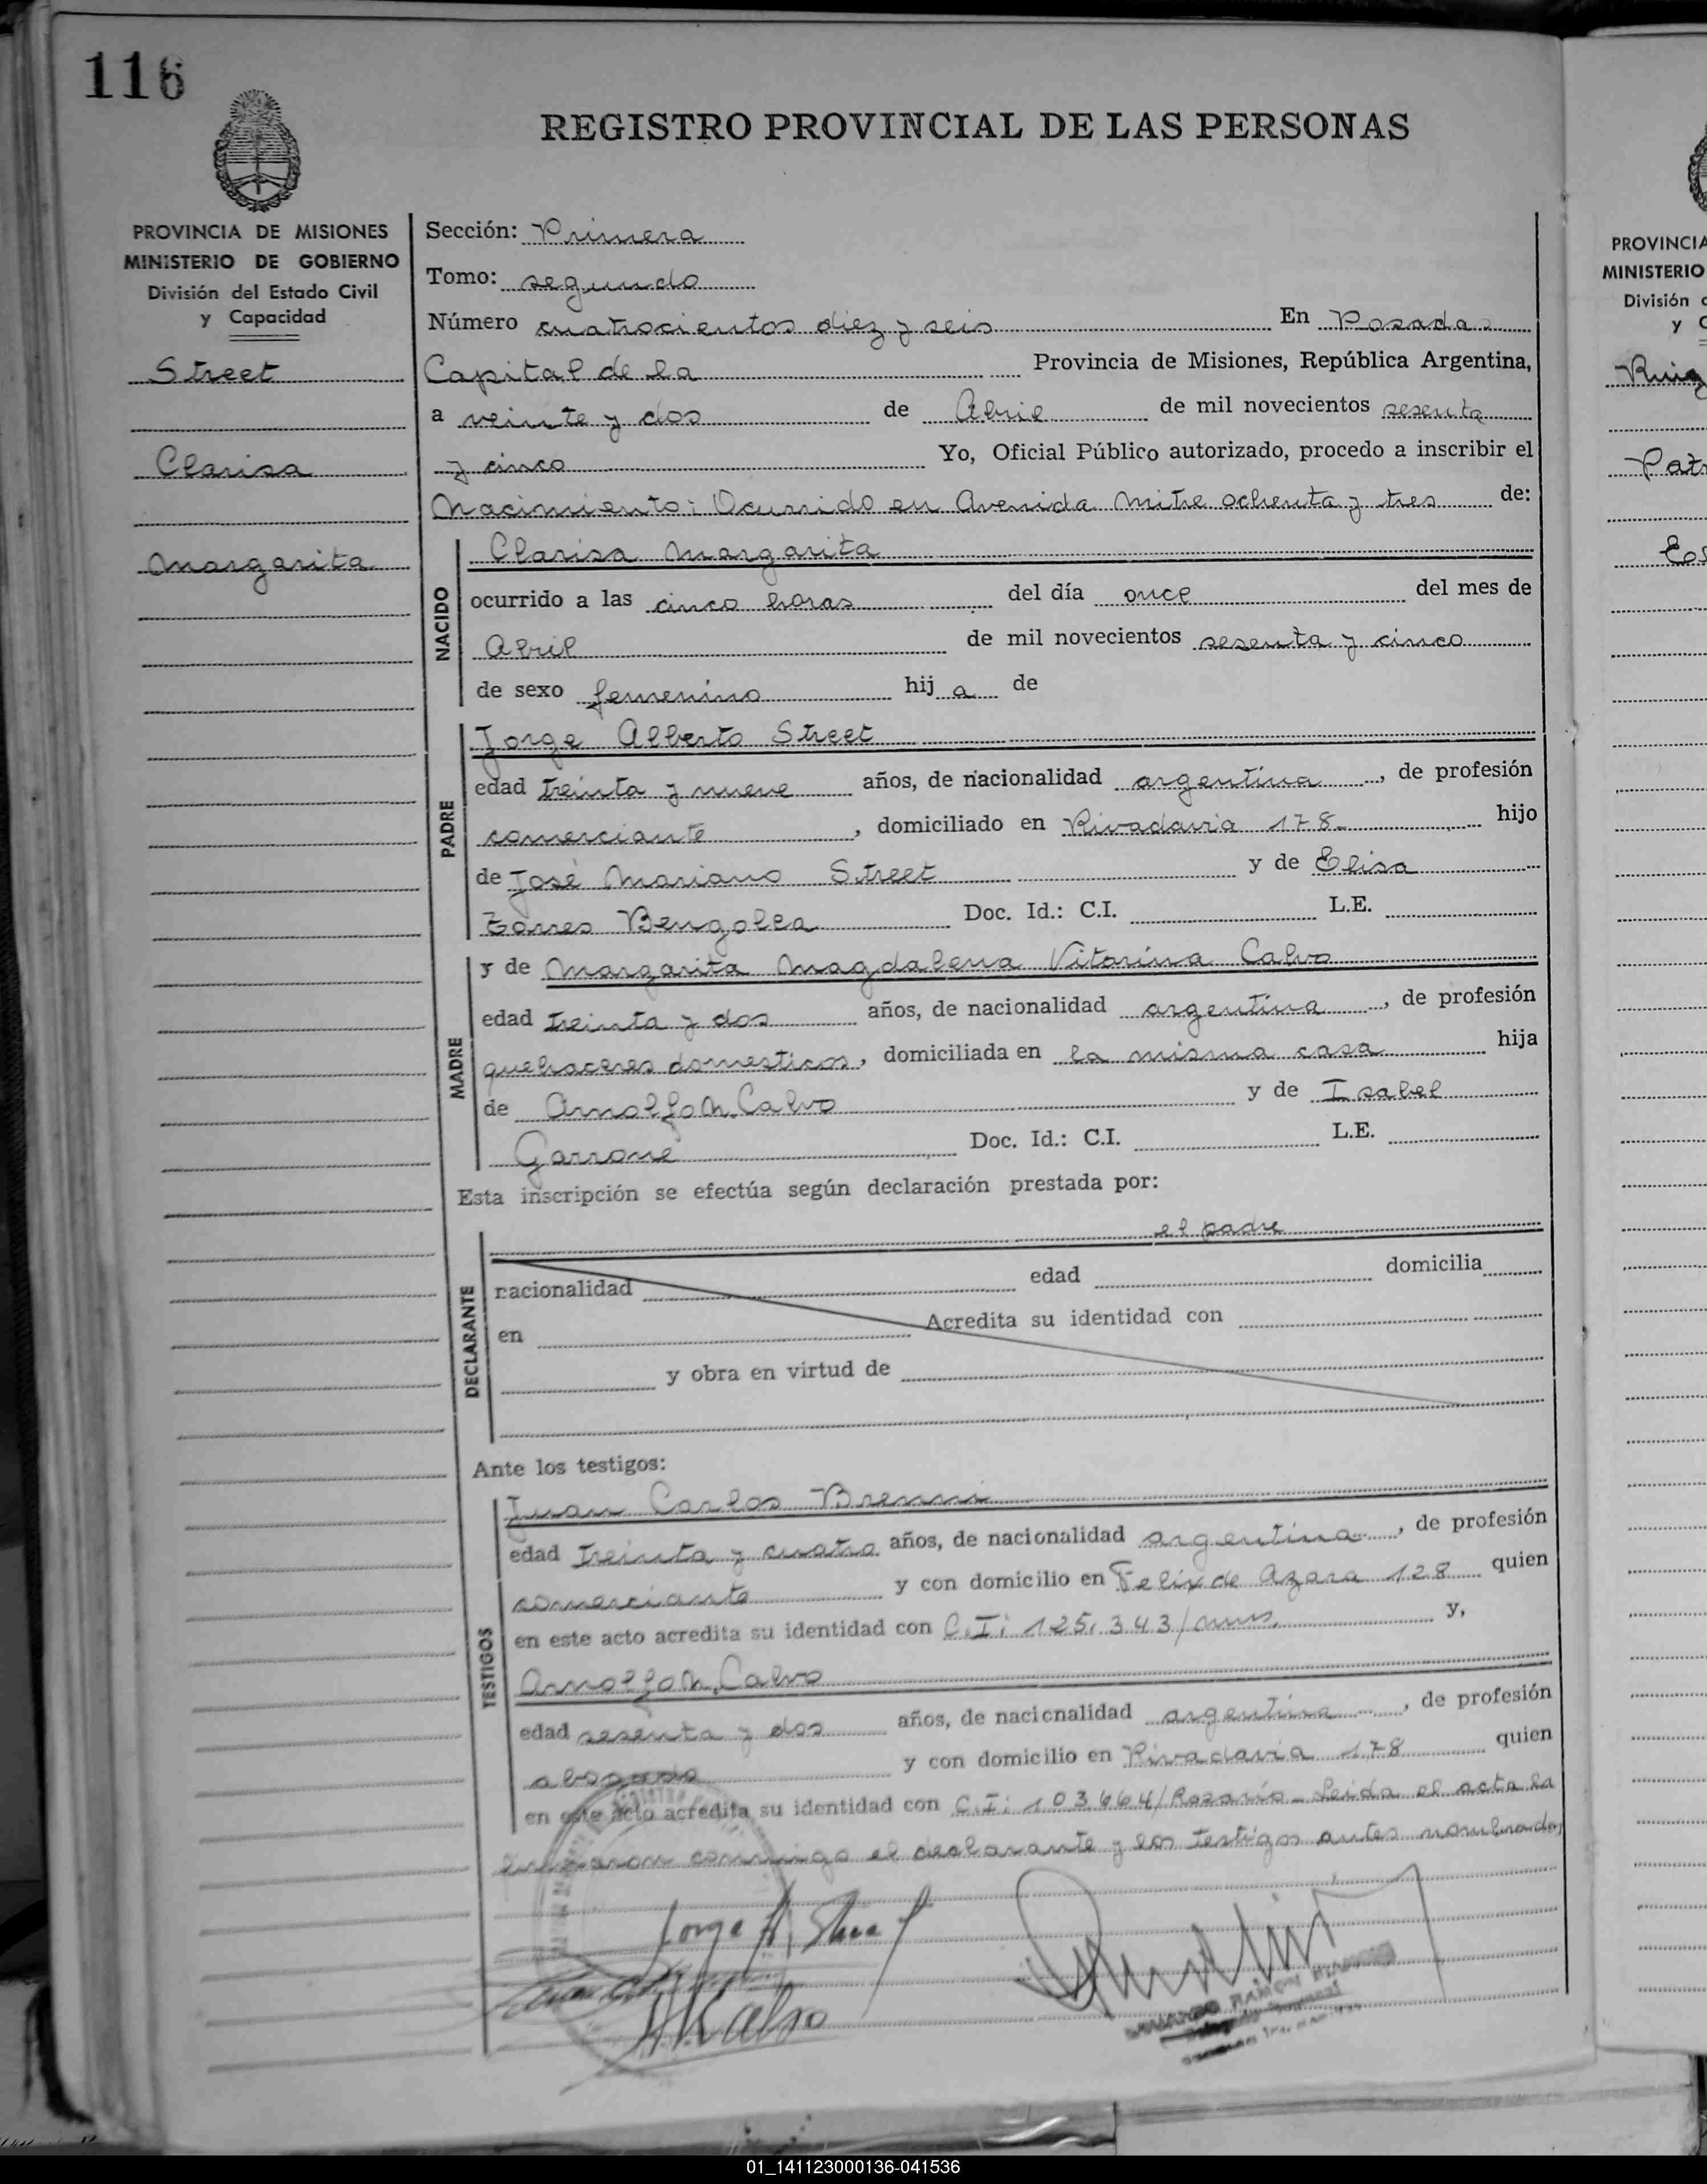 116
REGISTRO PROVINCIAL DE LAS PERSONAS
PROVINCIA DE MISIONES
MINISTERIO DE GOBIERNO
División del Estado Civil
y Capacidad
Street
Clarisa
Margarita
Sección: Primera
Tomo: segundo
Número cuatrocientos diez y seis En Posadas
Capital de la Provincia de Misiones, República Argentina,
a veinte y dos de Abril de mil novecientos sesenta
y cinco Yo, Oficial Público autorizado, procedo a inscribir el
Nacimiento: Ocurrido en Avenida Mitre ochenta y tres de:
NACIDO
Clarisa Margarita
ocurrido a las cinco horas del día once del mes de
Abril de mil novecientos sesenta y cinco
de sexo femenino hij a de
PADRE
Jorge Alberto Street
edad treinta y nueve años, de nacionalidad argentina, de profesión
comerciante, domiciliado en Rivadavia 178- hijo
de José Mariano Street y de Elisa
Torres Bengolea Doc. Id.: C.I. L.E.
MADRE
y de Margarita Magdalena Vitorina Calvo
edad treinta y dos años, de nacionalidad argentina, de profesión
quehaceres domesticos, domiciliada en la misma casa hija
de Arnolfo M. Calvo y de Isabel
Garrone Doc. Id.: C.I. L.E.
Esta inscripción se efectúa según declaración prestada por:
DECLARANTE
el padre
nacionalidad edad domicilia
en Acredita su identidad con
y obra en virtud de
Ante los testigos:
TESTIGOS
Juan Carlos Brenni
edad treinta y cuatro años, de nacionalidad argentina, de profesión
comerciante y con domicilio en Felix de Azara 128 quien
en este acto acredita su identidad con C.I: 125.343/mns. y,
Arnolfo M. Calvo
edad sesenta y dos años, de nacionalidad argentina, de profesión
abogado y con domicilio en Rivadavia 178 quien
en este acto acredita su identidad con C.I: 103.664/Rosario- Leida el acta la
firmaron conmigo el declarante y los testigos antes nombrados
Jorge A. Street
Calvo
RAMON
PROVINCIA
MINISTERIO
División
y C
Ruiz
01_141123000136-041536